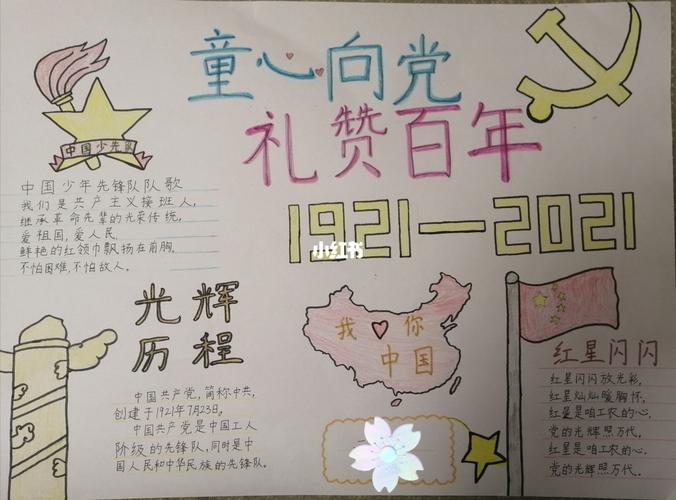 童心向党
礼赞百年
1921—2021
中国少先队
中国少年先锋队队歌
我们是共产主义接班人,
继承革命先辈的光荣传统,
爱祖国,爱人民,
鲜艳的红领巾飘扬在前胸,
不怕困难,不怕敌人。
小红书
光辉
历程
中国共产党,简称中共,
创建于1921年7月23日。
中国共产党是中国工人
阶级的先锋队,同时是中
国人民和中华民族的先锋队。
我 你
中国
红星闪闪
红星闪闪放光彩,
红星灿灿暖胸怀,
红星是咱工农的心,
党的光辉照万代,
红星是咱工农的心,
党的光辉照万代。